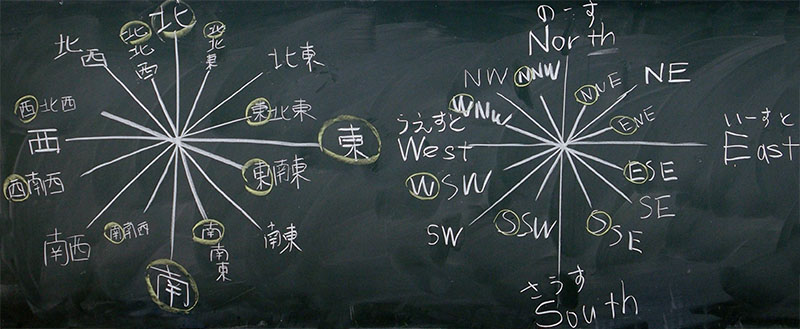 北
北西
北北西
北北東
北東
西北西
東北東
西
東
西南西
東南東
南西
南南西
南南東
南東
南
のーす
North
NW
NNW
NNE
NE
WNW
ENE
うえすと
West
いーすと
East
WSW
ESE
SW
SSW
SSE
SE
さうす
South